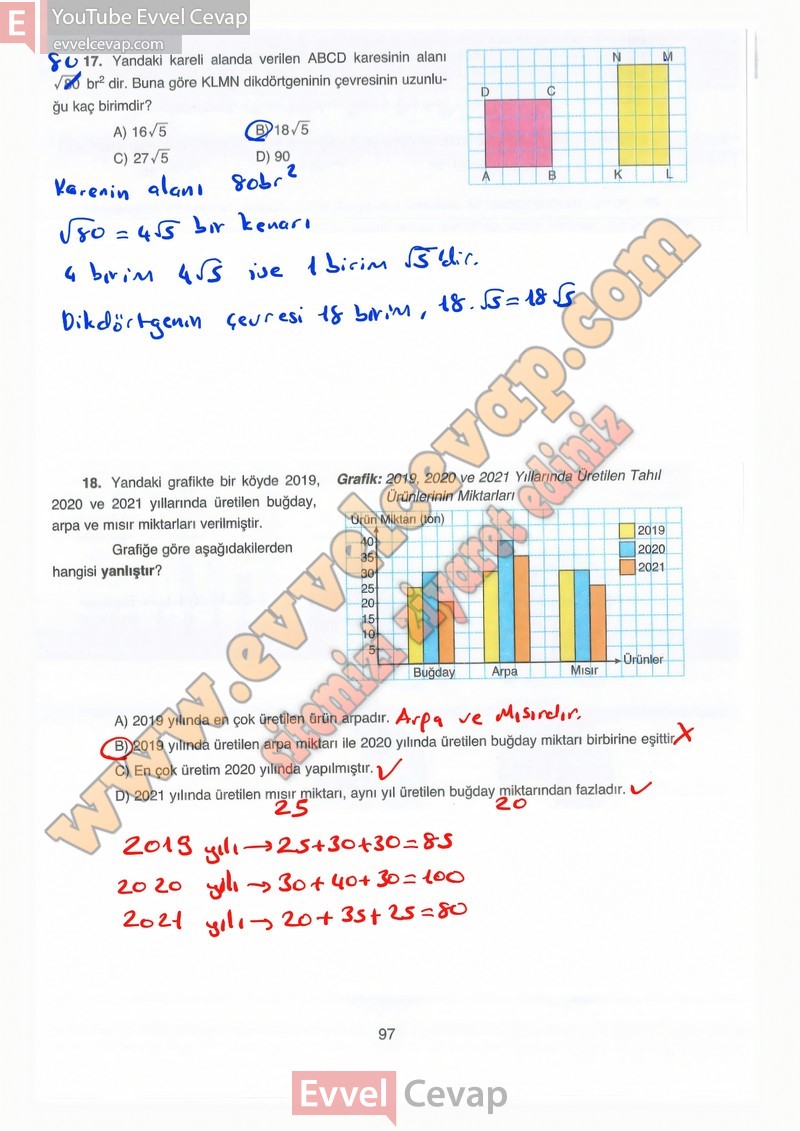 E YouTube Evvel Cevap
evvelcevap.com
80 17. Yandaki kareli alanda verilen ABCD karesinin alanı
√80 br² dir. Buna göre KLMN dikdörtgeninin çevresinin uzunlu-
ğu kaç birimdir?
A) 16√5 B) 18√5
C) 27√5 D) 90
N M
D C
A B K L
Karenin alanı 80br²
√80 = 4√5 bir kenarı
4 birim 4√5 ise 1 birim √5'dir.
Dikdörtgenin çevresi 18 birim, 18.√5=18√5
18. Yandaki grafikte bir köyde 2019,
2020 ve 2021 yıllarında üretilen buğday,
arpa ve mısır miktarları verilmiştir.
Grafiğe göre aşağıdakilerden
hangisi yanlıştır?
Grafik: 2019, 2020 ve 2021 Yıllarında Üretilen Tahıl
Ürünlerinin Miktarları
Ürün Miktarı (ton)
40
35
30
25
20
15
10
5
2019
2020
2021
Buğday Arpa Mısır Ürünler
www.evvelcevap.com
sitemizi ziyaret ediniz
A) 2019 yılında en çok üretilen ürün arpadır. Arpa ve Mısırdır.
B) 2019 yılında üretilen arpa miktarı ile 2020 yılında üretilen buğday miktarı birbirine eşittir. X
C) En çok üretim 2020 yılında yapılmıştır. ✓
D) 2021 yılında üretilen mısır miktarı, aynı yıl üretilen buğday miktarından fazladır. ✓
25 20
2019 yılı → 25+30+30=85
2020 yılı → 30+40+30=100
2021 yılı → 20+35+25=80
97
Evvel Cevap